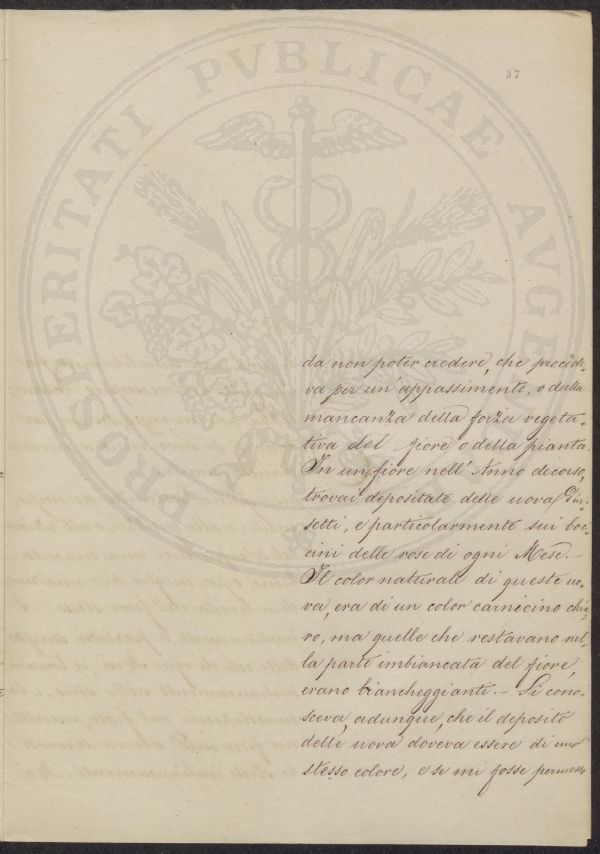 37
PROSPERITATI PVBLICAE AVGE
da non poter credere, che procede-
va per un' appassimento, o dalla
mancanza della forza vegeta-
tiva del fiore o della pianta.
In un fiore nell' Anno decorso,
trovai depositate delle uova d'in-
setti, e particolarmente sui boc-
cini delle rose di ogni Mese. -
Il color naturale di queste uo-
va, era di un color carnicino chia-
ro, ma quelle che restavano nel-
la parte imbiancata del fiore,
erano biancheggianti. - Si cono-
sceva, adunque, che il deposito
delle uova doveva essere di uno
stesso colore, e se mi fosse permesso